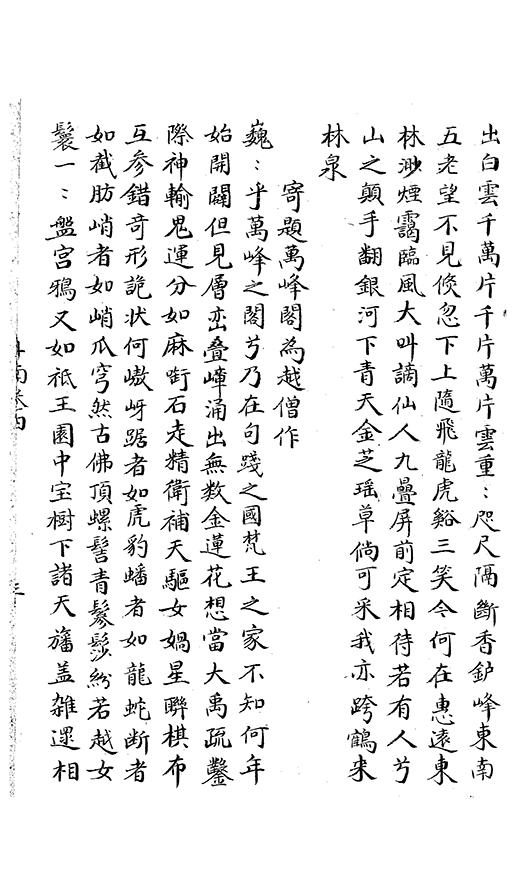 出白雲千萬片千片萬片雲重：咫尺隔斷香鈩峰東南
五老望不見倐忽下上隨飛龍虎谿三笑今何在惠遠東
林渺煙靄臨風大叫謫仙人九疊屏前定相待若有人兮
山之顛手翻銀河下青天金芝瑶草倘可采我亦跨鶴来
林泉
寄題萬峰閣為越僧作
巍：乎萬峰之閣兮乃在句踐之國梵王之家不知何年
始開闢但見層峦叠嶂涌出無数金蓮花想當大禹疏鑿
際神輸鬼運分如麻衘石走精衛補天驅女媧星聯棋布
互參錯竒形詭状何嶔岈踞者如虎豹蟠者如龍蛇断者
如截肪峭者如峭瓜穹然古佛頂螺髻青鬖髿紛若越女
鬟一：盤宫鴉又如祇王園中宝樹下諸天旛盖雑遝相
卷四
三